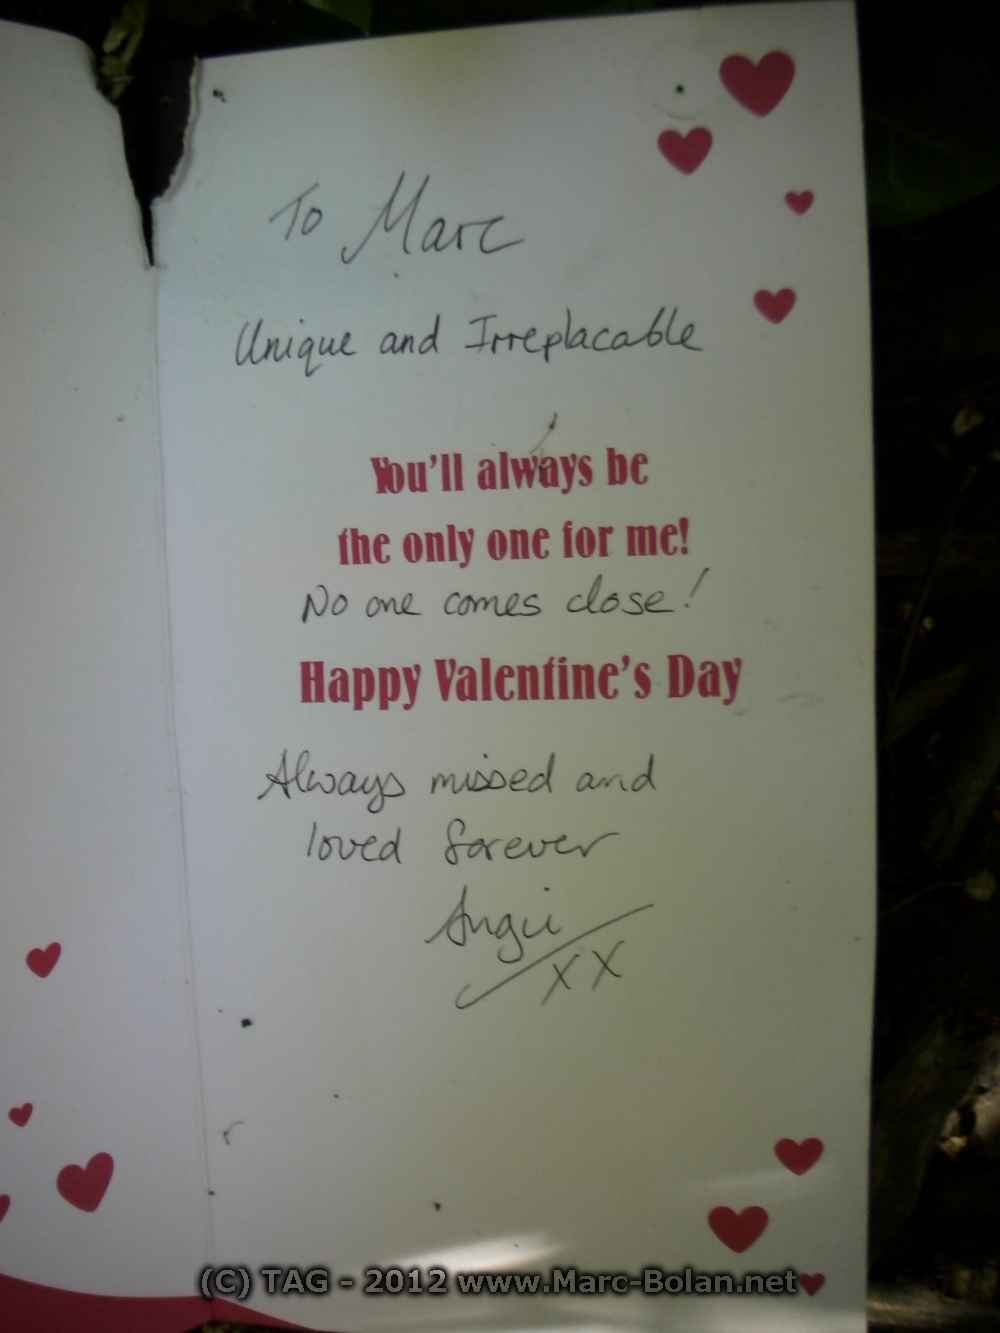 To Marc
Unique and Irreplacable
You'll always be
the only one for me!
No one comes close!
Happy Valentine's Day
Always missed and
loved forever
Angie
XX
(C) TAG - 2012 www.Marc-Bolan.net